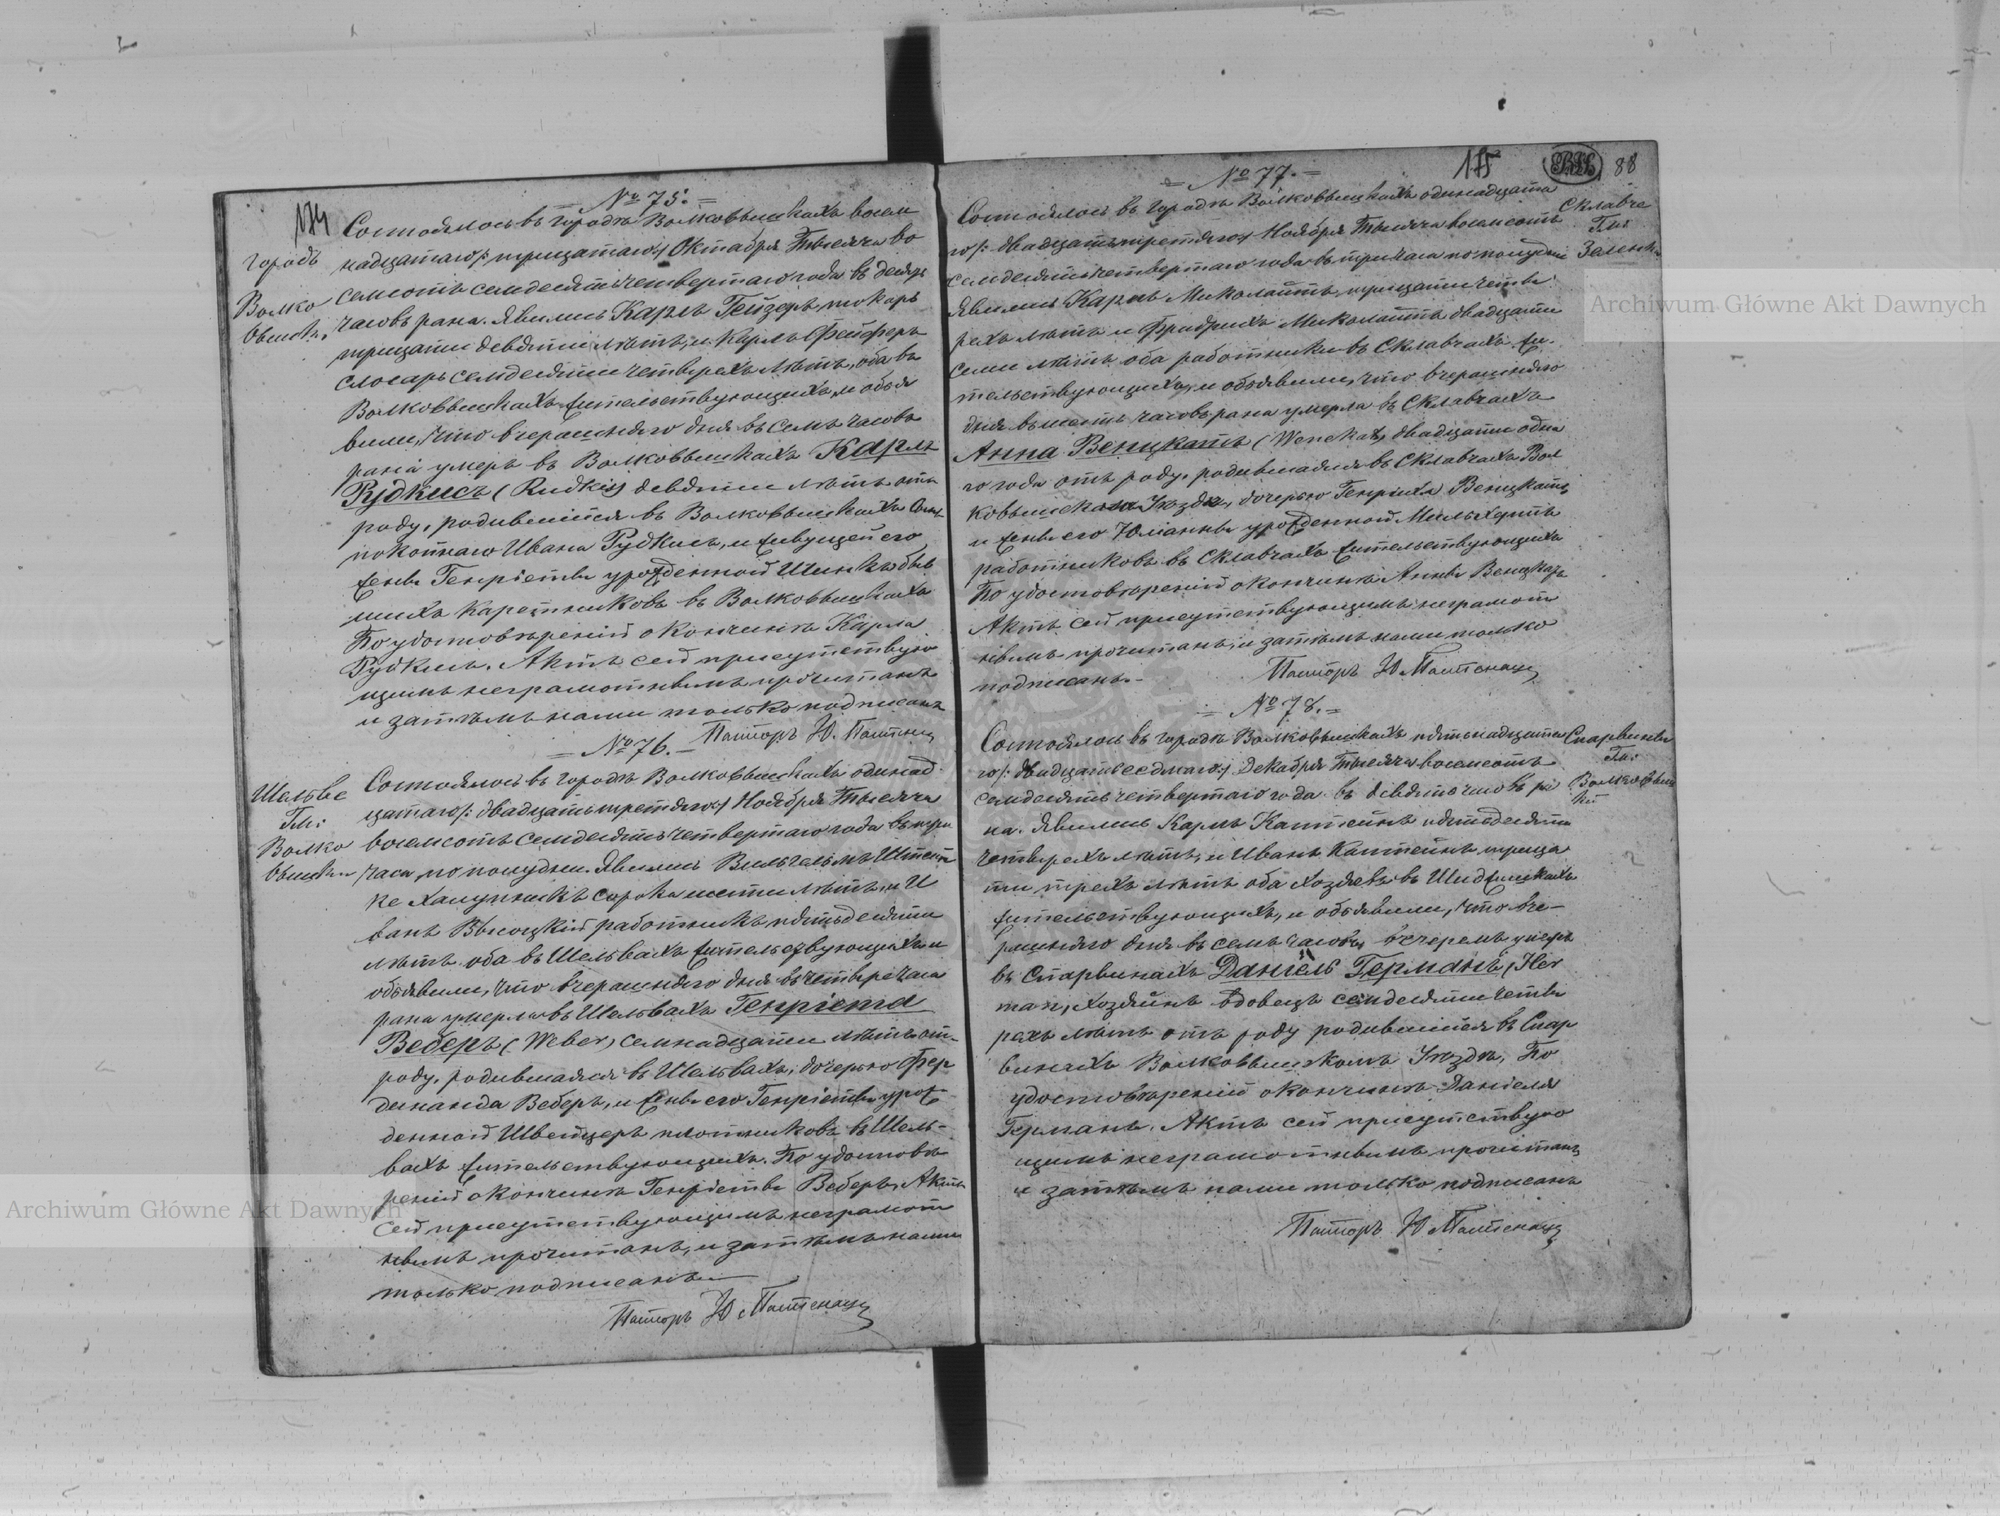 174
№ 75.
городъ
Волко
вышки
Состоялось въ городѣ Волковышкахъ восем
надцатаго /: тридцатаго :/ Октября Тысяча во
семсотъ семдесятъ четвертаго года въ десять
часовъ рана. Явились Карлъ Гейзеръ, токарь
тридцати девяти лѣтъ, и Карлъ Фейферъ
слосарь семдесяти четверехъ лѣтъ, оба въ
Волковышкахъ жительствующихъ, и объя
вили, что вчерашняго дня въ семъ часовъ
рана умеръ въ Волковышкахъ Карлъ
Рудкисъ (Rudkis) девяти лѣтъ отъ
роду, родившійся въ Волковышкахъ сынъ
покойнаго Ивана Рудкисъ, и живущей его
жены Генріеты урожденной Шинкъ, быв
шихъ каретниковъ въ Волковышкахъ
По удостовѣреніи о кончинѣ Карла
Рудкисъ. Актъ сей присутствую
щимъ неграмотнымъ прочитанъ
и затѣмъ нами только подписанъ
Пасторъ Ю.
№ 76.
Шельве
Гм:
Волко
вышки
Состоялось въ городѣ Волковышкахъ одинад
цатаго /: двадцать третяго :/ Ноября Тысяча
восемсотъ семдесятъ четвертаго года въ три
часа, по полудни. Явились Вильгельмъ Штеп
ке халупникъ сорока шести лѣтъ, и И
ванъ Высоцкій работникъ пятьдесяти
лѣтъ, оба въ Шельвахъ жительствующихъ и
объявили, что вчерашняго дня въ четыре часа
рана умерла въ Шельвахъ Генріета
Веберъ (Weber) семнадцати лѣтъ отъ
роду, родившаяся въ Шельвахъ, дочерью Фер
динанда Веберъ, и жены его Генріеты урож
денной Швейцеръ плотниковъ въ Шель-
вахъ жительствующихъ. По удостовѣ
реніи о кончинѣ Генріеты Веберъ, Актъ
сей присутствующимъ неграмот
нымъ прочитанъ, и затѣмъ нами
только подписанъ
Пасторъ Ю.
175
88
№ 77.
Склавче
Гм:
Зелен
Состоялось въ городѣ Волковышкахъ одинадцата
го /: двадцать третяго :/ Ноября Тысяча восемсотъ
семдесятъ четвертаго года въ три часа по полудни
Явились Карлъ Миколайтъ, тридцати четы
рехъ лѣтъ и Фридрихъ Миколайтъ двадцати
семи лѣтъ оба работники въ Склавчахъ жи-
тельствующихъ, и объявили, что вчерашняго
дня въ шесть часовъ рана умерла въ Склавчахъ
Анна Венцкатъ (Wenckat) двадцати одна
го года отъ роду, родившаяся въ Склавчахъ Вол
ковышскаго Уѣзда, дочерью Генриха Венцкатъ
и жены его Юліанны урожденной Мильхертъ
работниковъ въ Склавчахъ жительствующихъ
По удостовѣреніи о кончинѣ Анны Венцкатъ
Актъ сей присутствующимъ неграмот
нымъ прочитанъ, и затѣмъ нами только
подписанъ.
Пасторъ Ю
№ 78.
Спарвины
Гм:
Волковыш
ки
Состоялось въ городѣ Волковышкахъ пятьнадцата
го /: двадцать седмаго :/ Декабря Тысяча восемсотъ
семдесятъ четвертаго года въ девять часовъ ра
на. Явились Карлъ Каптейнъ пятьдесяти
четверехъ лѣтъ, и Иванъ Каптейнъ тридца
ти трехъ лѣтъ оба хозяевы въ Шиджишкахъ
жительствующихъ, и объявили, что вче-
рашняго дня въ семъ часовъ вечеремъ умеръ
въ Спарвинахъ Даніель Германъ, (Her
man) хозяинъ вдовецъ семдесяти четы
рехъ лѣтъ отъ роду родившійся въ Спар
винахъ Волковышскомъ Уѣздѣ. По
удостовѣреніи о кончинѣ Даніеля
Германъ. Актъ сей присутствую
щимъ неграмотнымъ прочитанъ
и затѣмъ нами только подписанъ
Пасторъ Ю
Archiwum Główne Akt Dawnych
Archiwum Główne Akt Dawnych